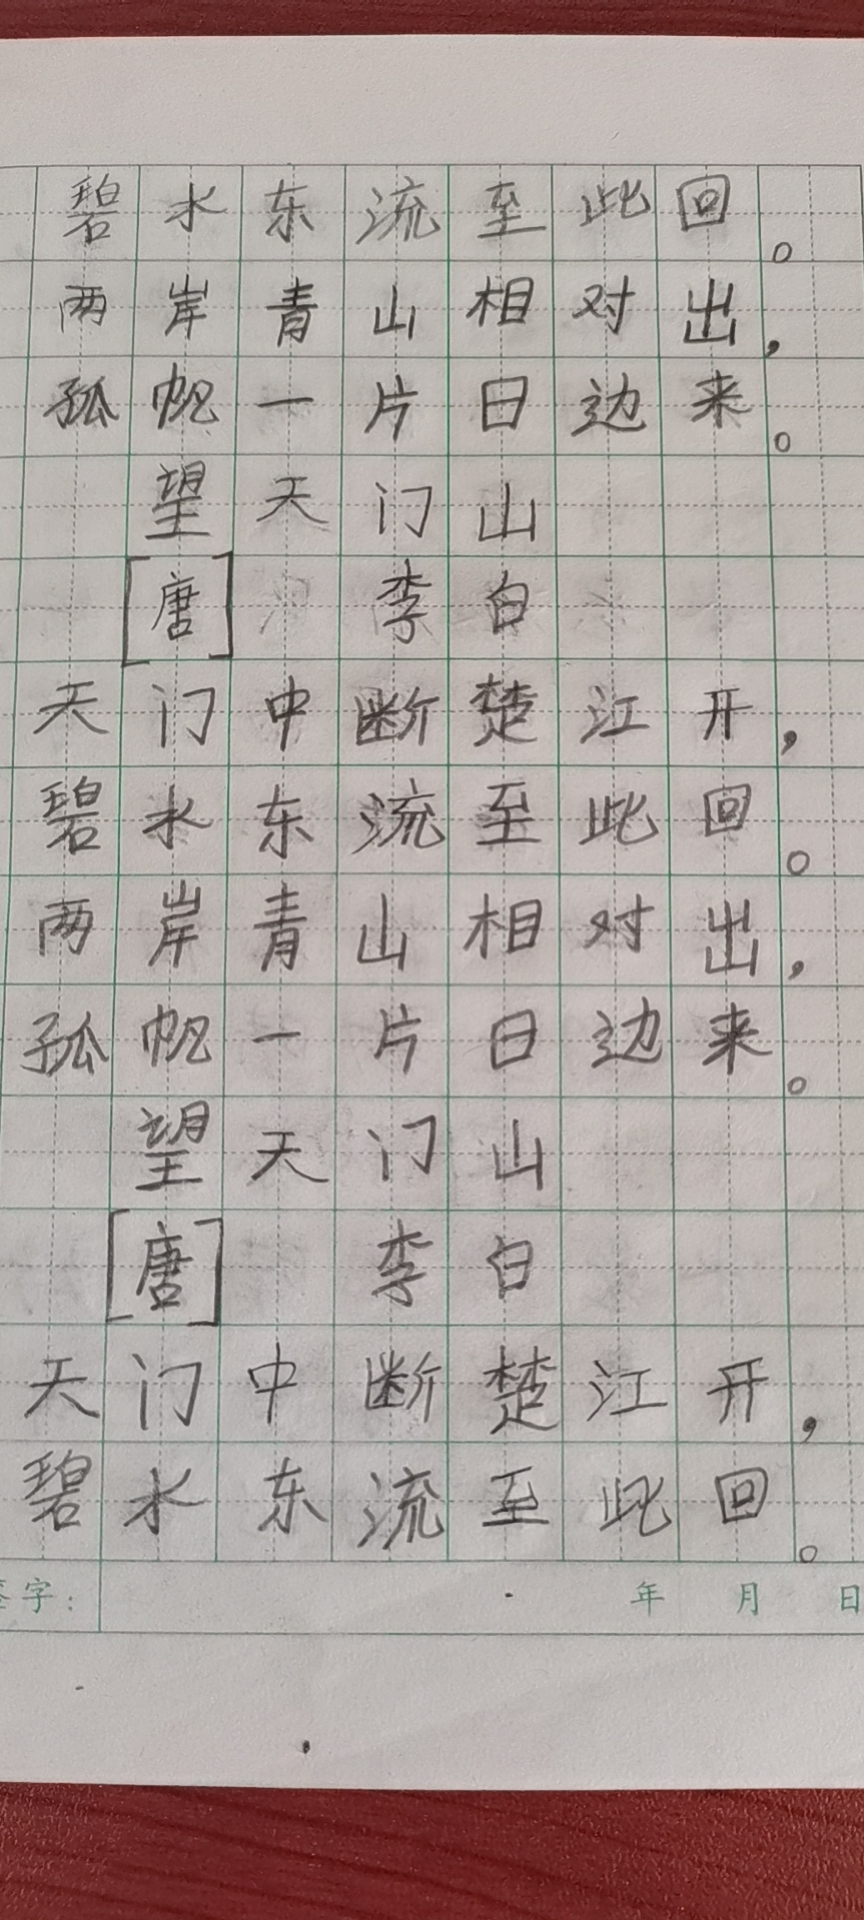 碧水东流至此回。
两岸青山相对出，
孤帆一片日边来。
望天门山
[唐] 李白
天门中断楚江开，
碧水东流至此回。
两岸青山相对出，
孤帆一片日边来。
望天门山
[唐] 李白
天门中断楚江开，
碧水东流至此回。
签字： 年 月 日